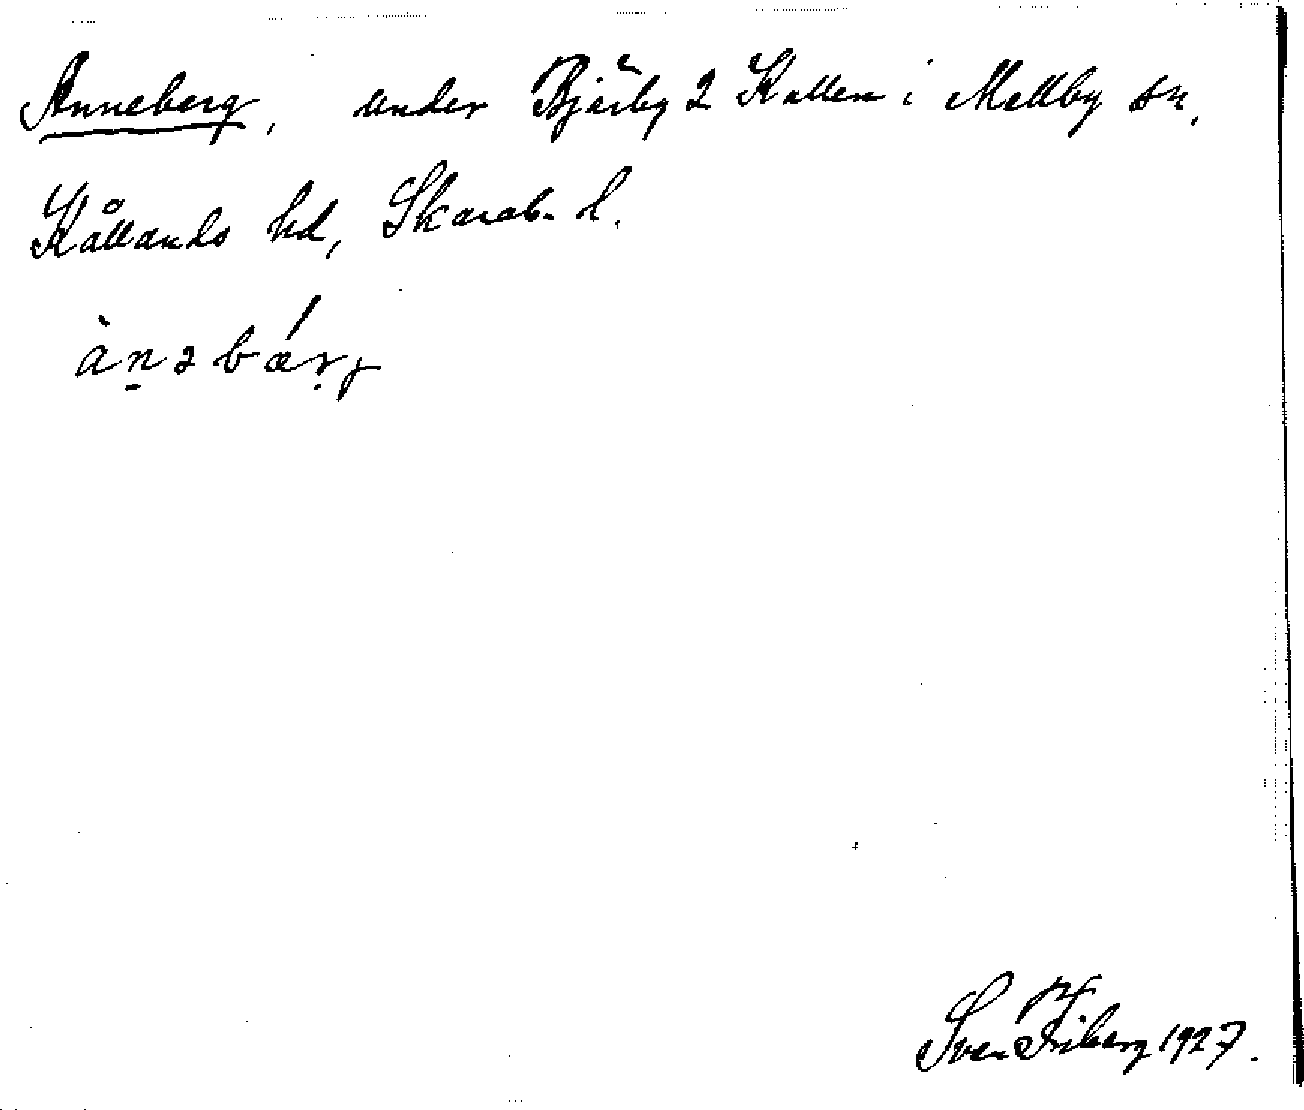 Anneberg, under Bjärby 2 Kallen i Mellby sn,
Kållands hd, Skarab. l.
ànəbǽrj
Sven Friberg 1927.